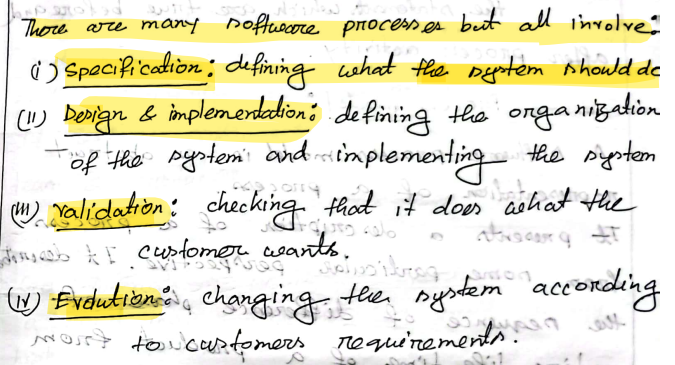 There are many software processes but all involve:
(i) Specification: defining what the system should do
(ii) Design & implementation: defining the organization
of the system and implementing the system
(iii) validation: checking that it does what the
customer wants.
(iv) Evolution: changing the system according
to customers requirements.